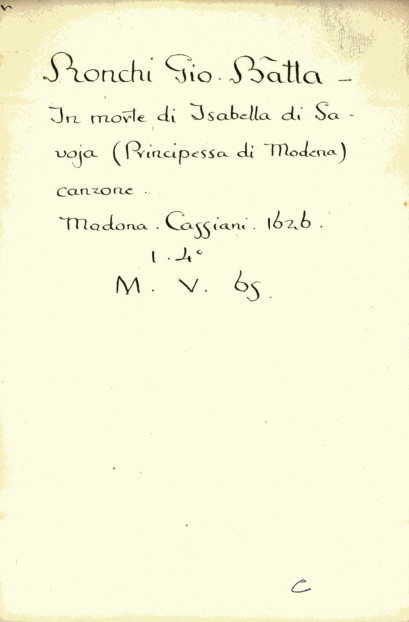 Ronchi Gio. Batta –
In morte di Isabella di Sa-
voja (Principessa di Modena)
canzone.
Modona. Cassiani. 1626.
1. 4°
M. V. 65.
C